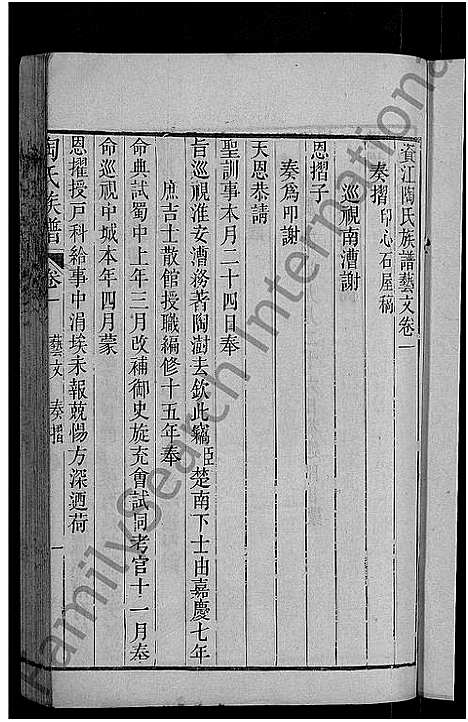 資江陶氏族譜藝文卷一
奏摺 印心石屋稿
巡視南漕謝
恩摺子
奏爲叩謝
天恩恭請
聖訓事本月二十四日奉
旨巡視淮安漕務著陶澍去欽此竊臣楚南下士由嘉慶七年
庶吉士散館授職編修十五年奉
命典試蜀中上年三月改補御史旋充會試同考官十一月奉
命巡視中城本年四月蒙
恩擢授戸科給事中涓埃未報兢惕方深迺荷
陶氏族譜 卷一 藝文 奏摺 一
FamilySearch International